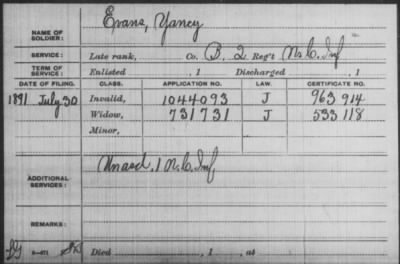 NAME OF SOLDIER: Evans, Yancy
SERVICE: Late rank, Co. B, 2 Reg't N.C. Inf
TERM OF SERVICE: Enlisted , 1 Discharged , 1
DATE OF FILING. CLASS. APPLICATION NO. LAW. CERTIFICATE NO.
1891 July 30 Invalid, 1044093 J 963914
Widow, 731731 J 533118
Minor,
ADDITIONAL SERVICES: Unasd. 1 N.C. Inf,
REMARKS:
Died , 1 , at